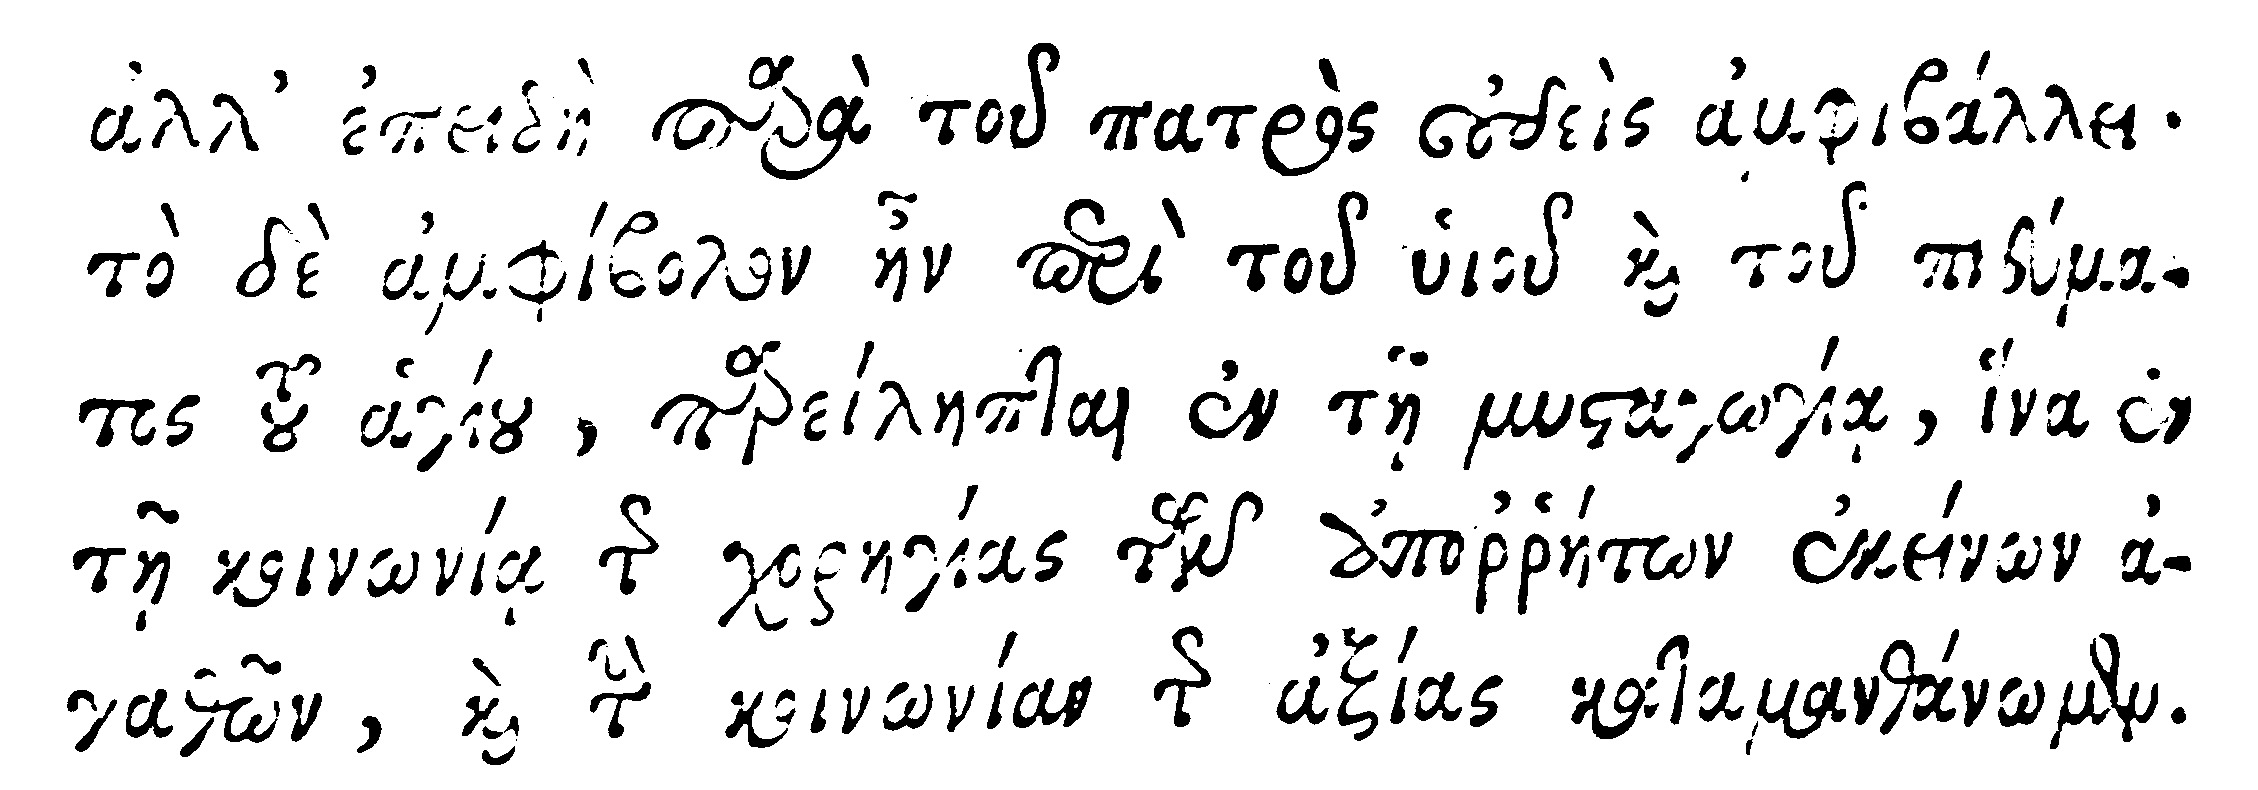 ἀλλ' ἐπειδὴ παρὰ τοῦ πατρὸς οὐδεὶς ἀμφιβάλλει.
τὸ δὲ ἀμφίβολον ἦν περὶ τοῦ ὑιοῦ καὶ τοῦ πνεύμα-
τος τοῦ ἁγίου, παρείληπται ἐν τῇ μυσταγωγίᾳ, ἵνα ἐν
τῇ κοινωνίᾳ τῆς χορηγίας τῶν ἀποῤῥήτων ἐκείνων ἀ-
γαθῶν, καὶ τὴν κοινωνίαν τῆς ἀξίας καταμανθάνωμεν.